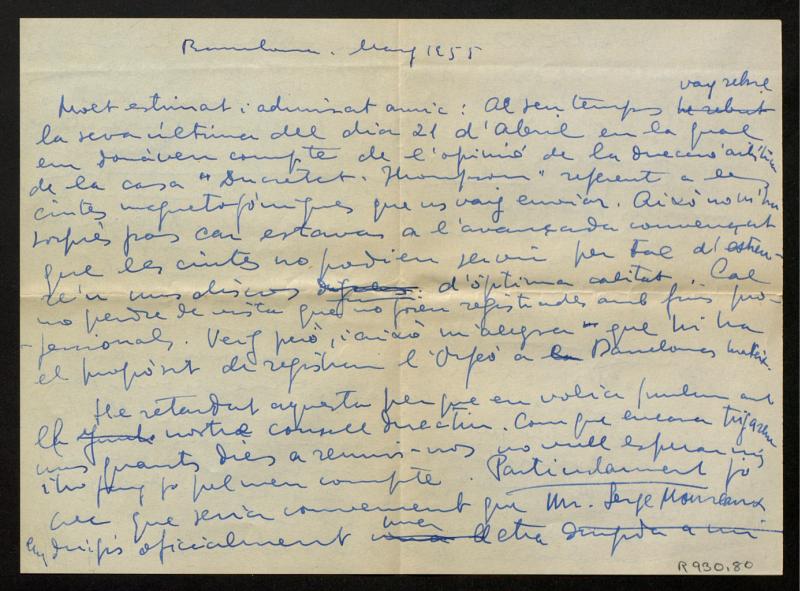 Barcelona. Maig 1955
vaig rebre
Molt estimat i admirat amic: Al seu temps he rebut
la seva última del dia 21 d'Abril en la qual
em donaven compte de l'opinió de la direcció artística
de la casa "Ducretet-Thompson" referent a les
cintes magnetofòniques que us vaig enviar. Això no m'ha
sorprès pas car estavas a l'avançada convençut
que les cintes no podien servir per tal d'estren-
re'n uns discos d'òptima calitat. Cal
no perdre de vista que no foren registrades amb fins pro-
fessionals. Veig però, i això m'alegra que hi ha
el propòsit de registrar l'Orfeó a la Barcelona mateix.
He retardat aquesta perque en volia parlar amb
el nostre consell directiu. Com que encara trigarem
uns quants dies a reunir-nos no vull esperar més
i ho faig jo pel meu compte. Particularment jo
crec que seria convenient que Mr. Serge Moreaux
em dirigís oficialment una lletra dirigida a mi
R 930,80